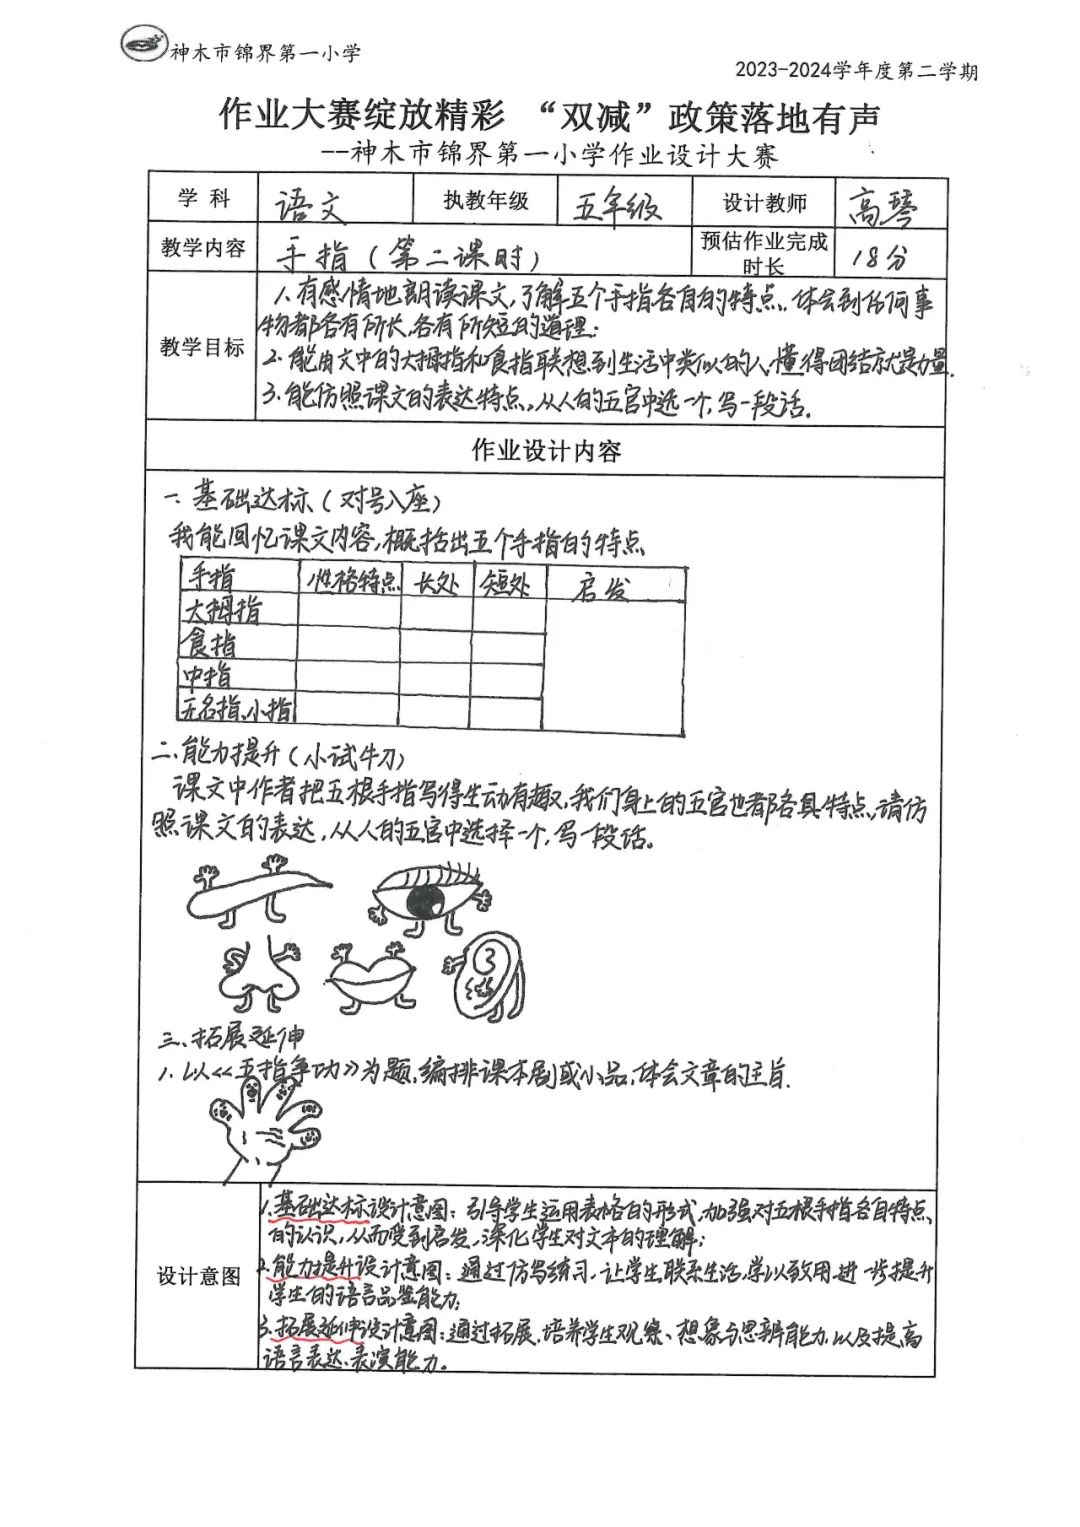 神木市锦界第一小学
2023-2024学年度第二学期
作业大赛绽放精彩 “双减”政策落地有声
--神木市锦界第一小学作业设计大赛
学 科 语文 执教年级 五年级 设计教师 高琴
教学内容 手指(第二课时) 预估作业完成时长 18分
教学目标
1.有感情地朗读课文,了解五个手指各自的特点。体会到任何事
物都各有所长,各有所短的道理;
2.能由文中的大拇指和食指联想到生活中类似的人,懂得团结就是力量.
3.能仿照课文的表达特点,从人的五官中选一个,写一段话.
作业设计内容
一、基础达标(对号入座)
我能回忆课文内容,概括出五个手指的特点
手指 性格特点 长处 短处 启发
大拇指
食指
中指
无名指、小指
二、能力提升(小试牛刀)
课文中作者把五根手指写得生动有趣,我们身上的五官也都各具特点,请仿
照课文的表达,从人的五官中选择一个,写一段话。
三、拓展延伸
1.以《五指争功》为题,编排课本剧或小品,体会文章的主旨.
设计意图
1.基础达标设计意图:引导学生运用表格的形式,加强对五根手指各自特点
的认识,从而受到启发,深化学生对文本的理解;
2.能力提升设计意图:通过仿写练习,让学生联系生活,学以致用,进一步提升
学生的语言品鉴能力;
3.拓展延伸设计意图:通过拓展,培养学生观察、想象与思辨能力,以及提高
语言表达、表演能力。